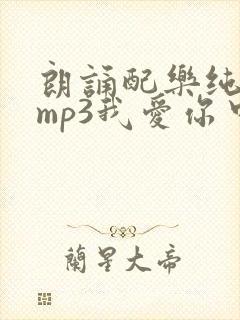 朗誦配樂純
mp3我愛你
蘭星大帝